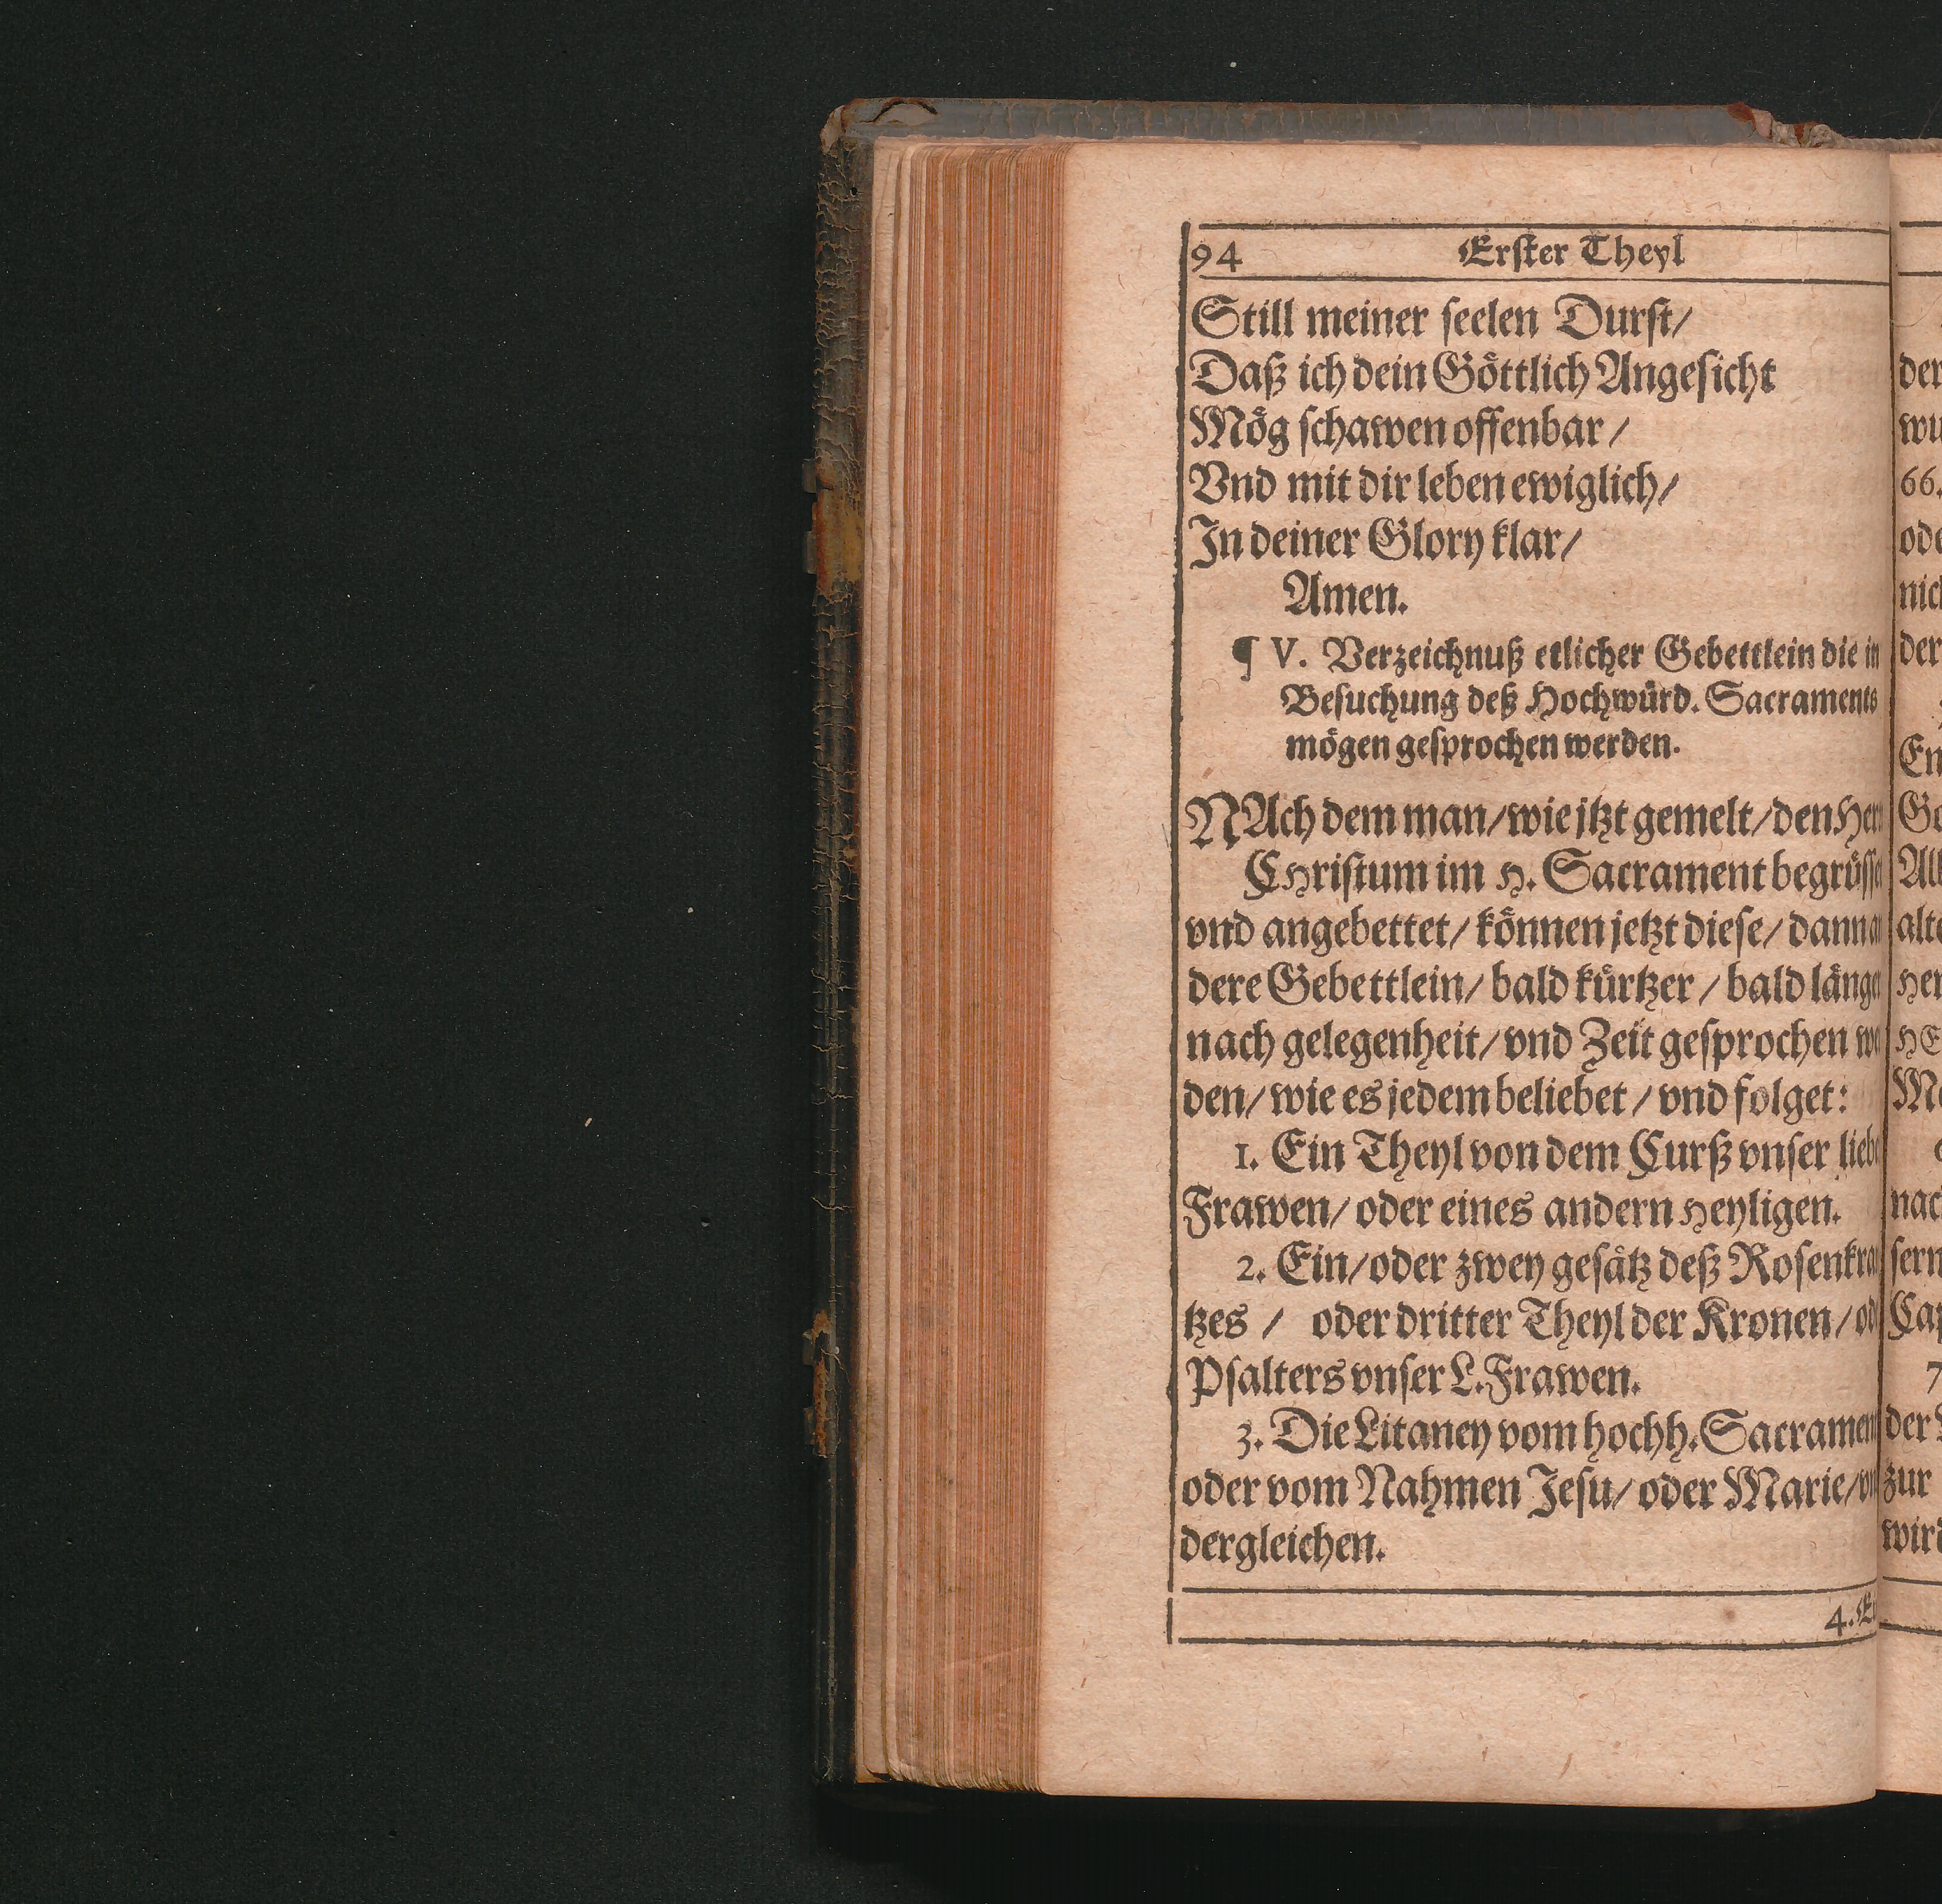 94 Erster Theyl
Still meiner seelen Durst/
Daß ich dein Göttlich Angesicht
Mög schawen offenbar/
Vnd mit dir leben ewiglich/
In deiner Glory klar/
Amen.
¶ V. Verzeichnuß etlicher Gebettlein die in
Besuchung deß Hochwürd. Sacraments
mögen gesprochen werden.
NAch dem man/wie jtzt gemelt/den
CHristum im H. Sacrament
vnd angebettet/ können jetzt diese/ dann
dere Gebettlein/ bald kürtzer/ bald
nach gelegenheit/ vnd Zeit gesprochen
den/ wie es jedem beliebet/ vnd folget:
1. Ein Theyl von dem Curß vnser
Frawen/ oder eines andern Heyligen.
2. Ein/oder zwey gesätz deß
tzes / oder dritter Theyl der Kronen/
Psalters vnser L. Frawen.
3. Die Litaney vom hochh.
oder vom Nahmen Jesu/ oder Marie/
dergleichen.
4.
66.
alte
zur